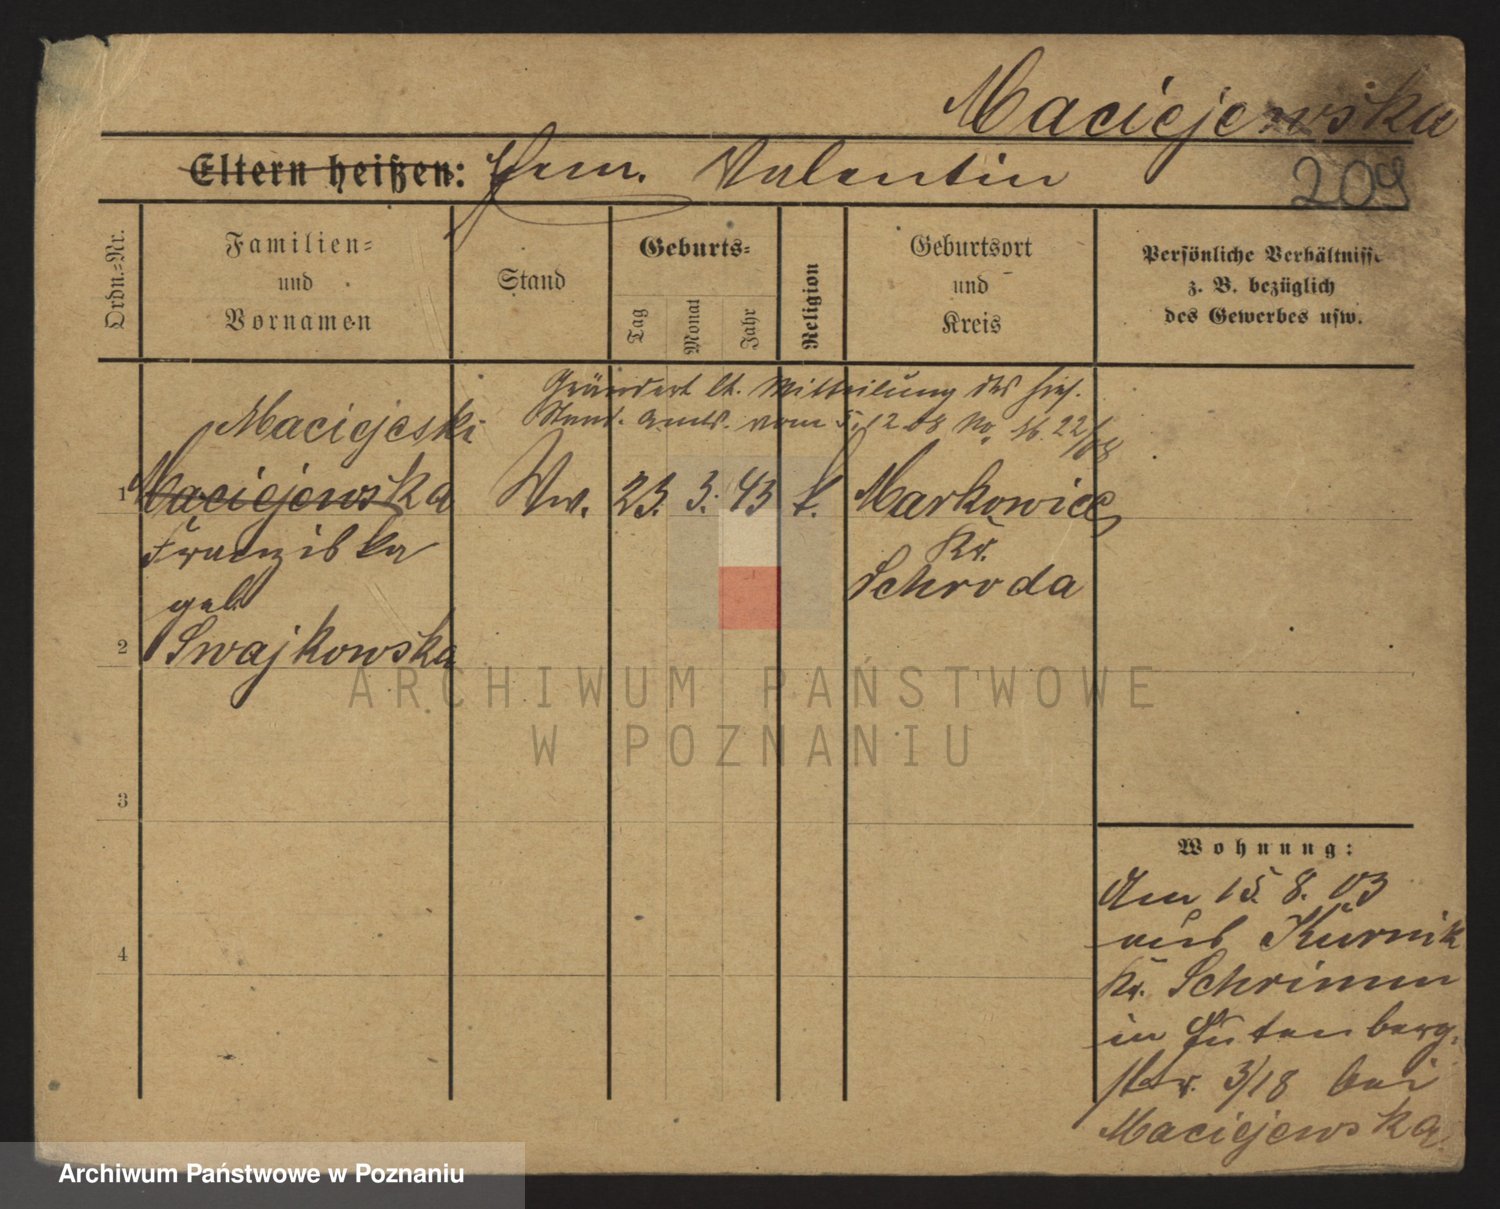 Maciejewska
Eltern heißen: Valentin
209
Ordn.-Nr.
Familien-
und
Vornamen
Stand
Geburts-
Tag
Monat
Jahr
Religion
Geburtsort
und
Kreis
Persönliche Verhältnisse
z. B. bezüglich
des Gewerbes usw.
Geändert lt. Mitteilung des
Stand. Amts. vom 5.12.08 No.
Maciejeski
1 Maciejewska Ww. 23. 3. 43 k. Markowice
Franziska Kr.
geb. Schroda
2 Swajkowska
3
4
Wohnung:
Am 15. 8. 03
aus Kurnik
Kr. Schrimm
in Gutenberg-
str. 3/18 bei
Maciejewska
ARCHIWUM PAŃSTWOWE
W POZNANIU
Archiwum Państwowe w Poznaniu